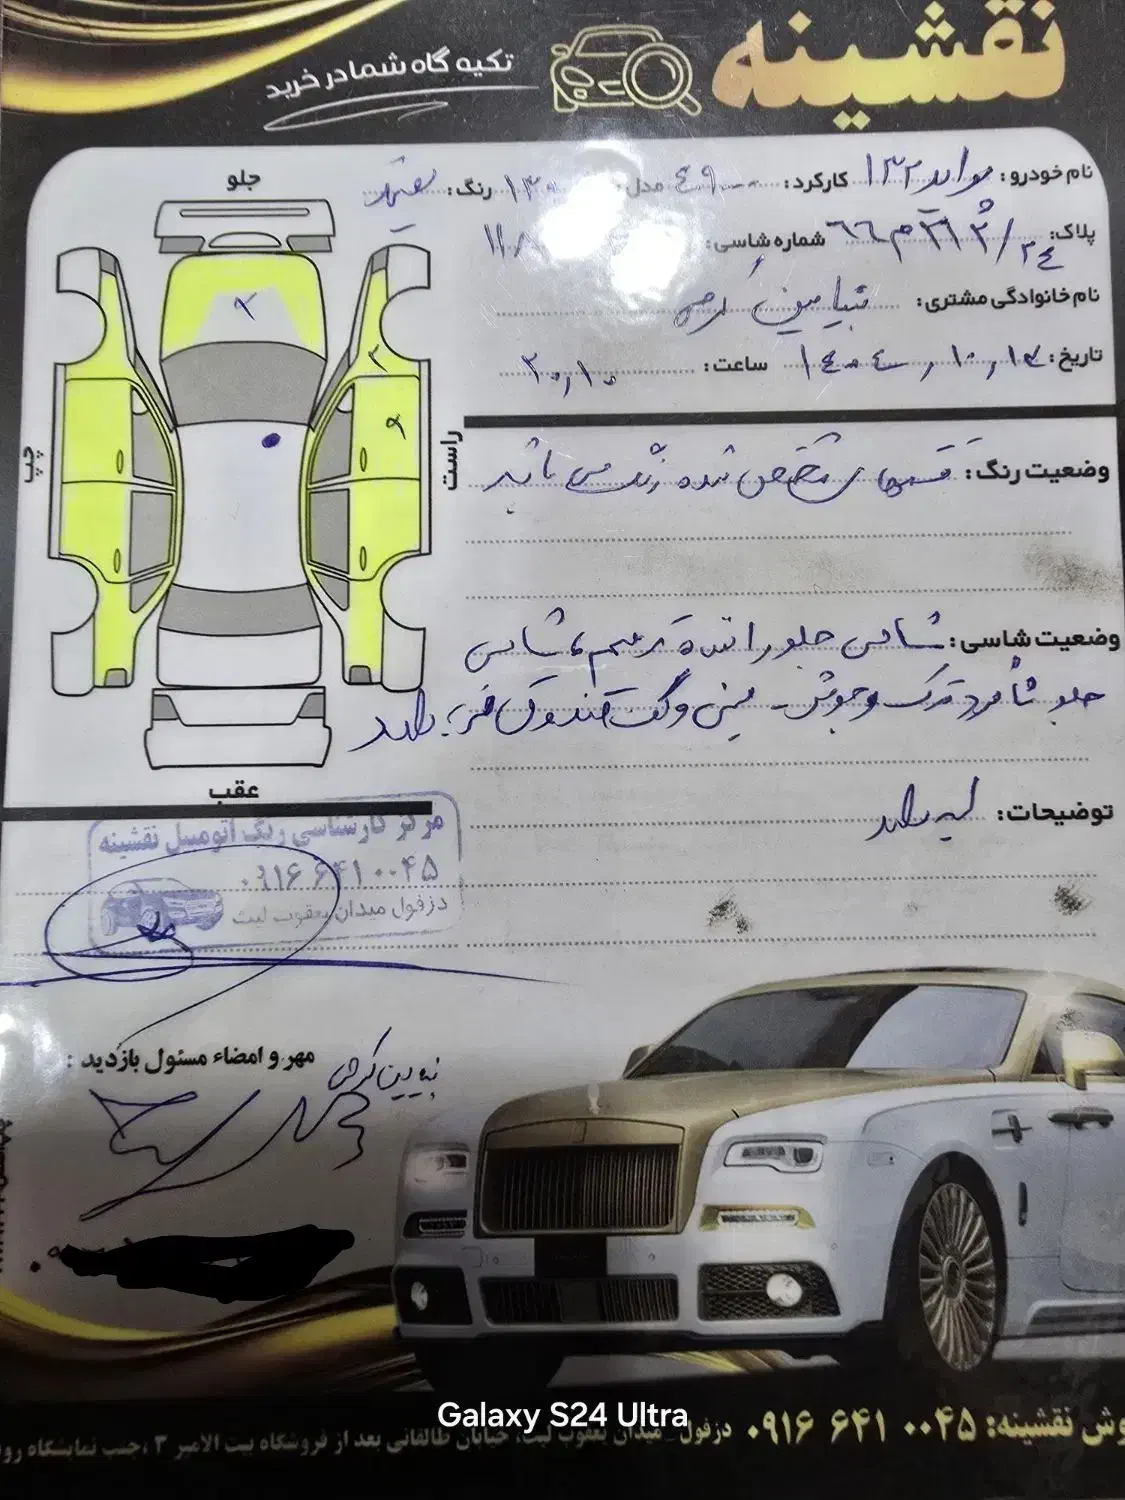 نقشینه
تکیه گاه شما در خرید
نام خودرو: پراید ۱۳۲ کارکرد: ۴۹۰۰۰ مدل: رنگ: سفید
پلاک: شماره شاسی:
نام خانوادگی مشتری: بنیامین کرمی
تاریخ: ۱۴۰۴,۱۰,۱۴ ساعت: ۲۰,۱۰
جلو
چپ
راست
عقب
وضعیت رنگ: قسمتهای مشخص شده رنگ می باشد
وضعیت شاسی: شاسی جلو راننده ترمیم، شاسی
جلو شاگرد ترک و جوش - سینی و گلت صندوق ضربه دارد
توضیحات: لیسه دارد
مرکز کارشناسی رنگ اتومبیل نقشینه
۰۹۱۶ ۶۴۱ ۰۰۴۵
دزفول میدان یعقوب لیث
مهر و امضاء مسئول بازدید:
بنیامین کرمی
Galaxy S24 Ultra
نقشینه: ۰۹۱۶ ۶۴۱ ۰۰۴۵ دزفول میدان یعقوب لیث، خیابان طالقانی بعد از فروشگاه بیت الامیر ۳، جنب نمایشگاه